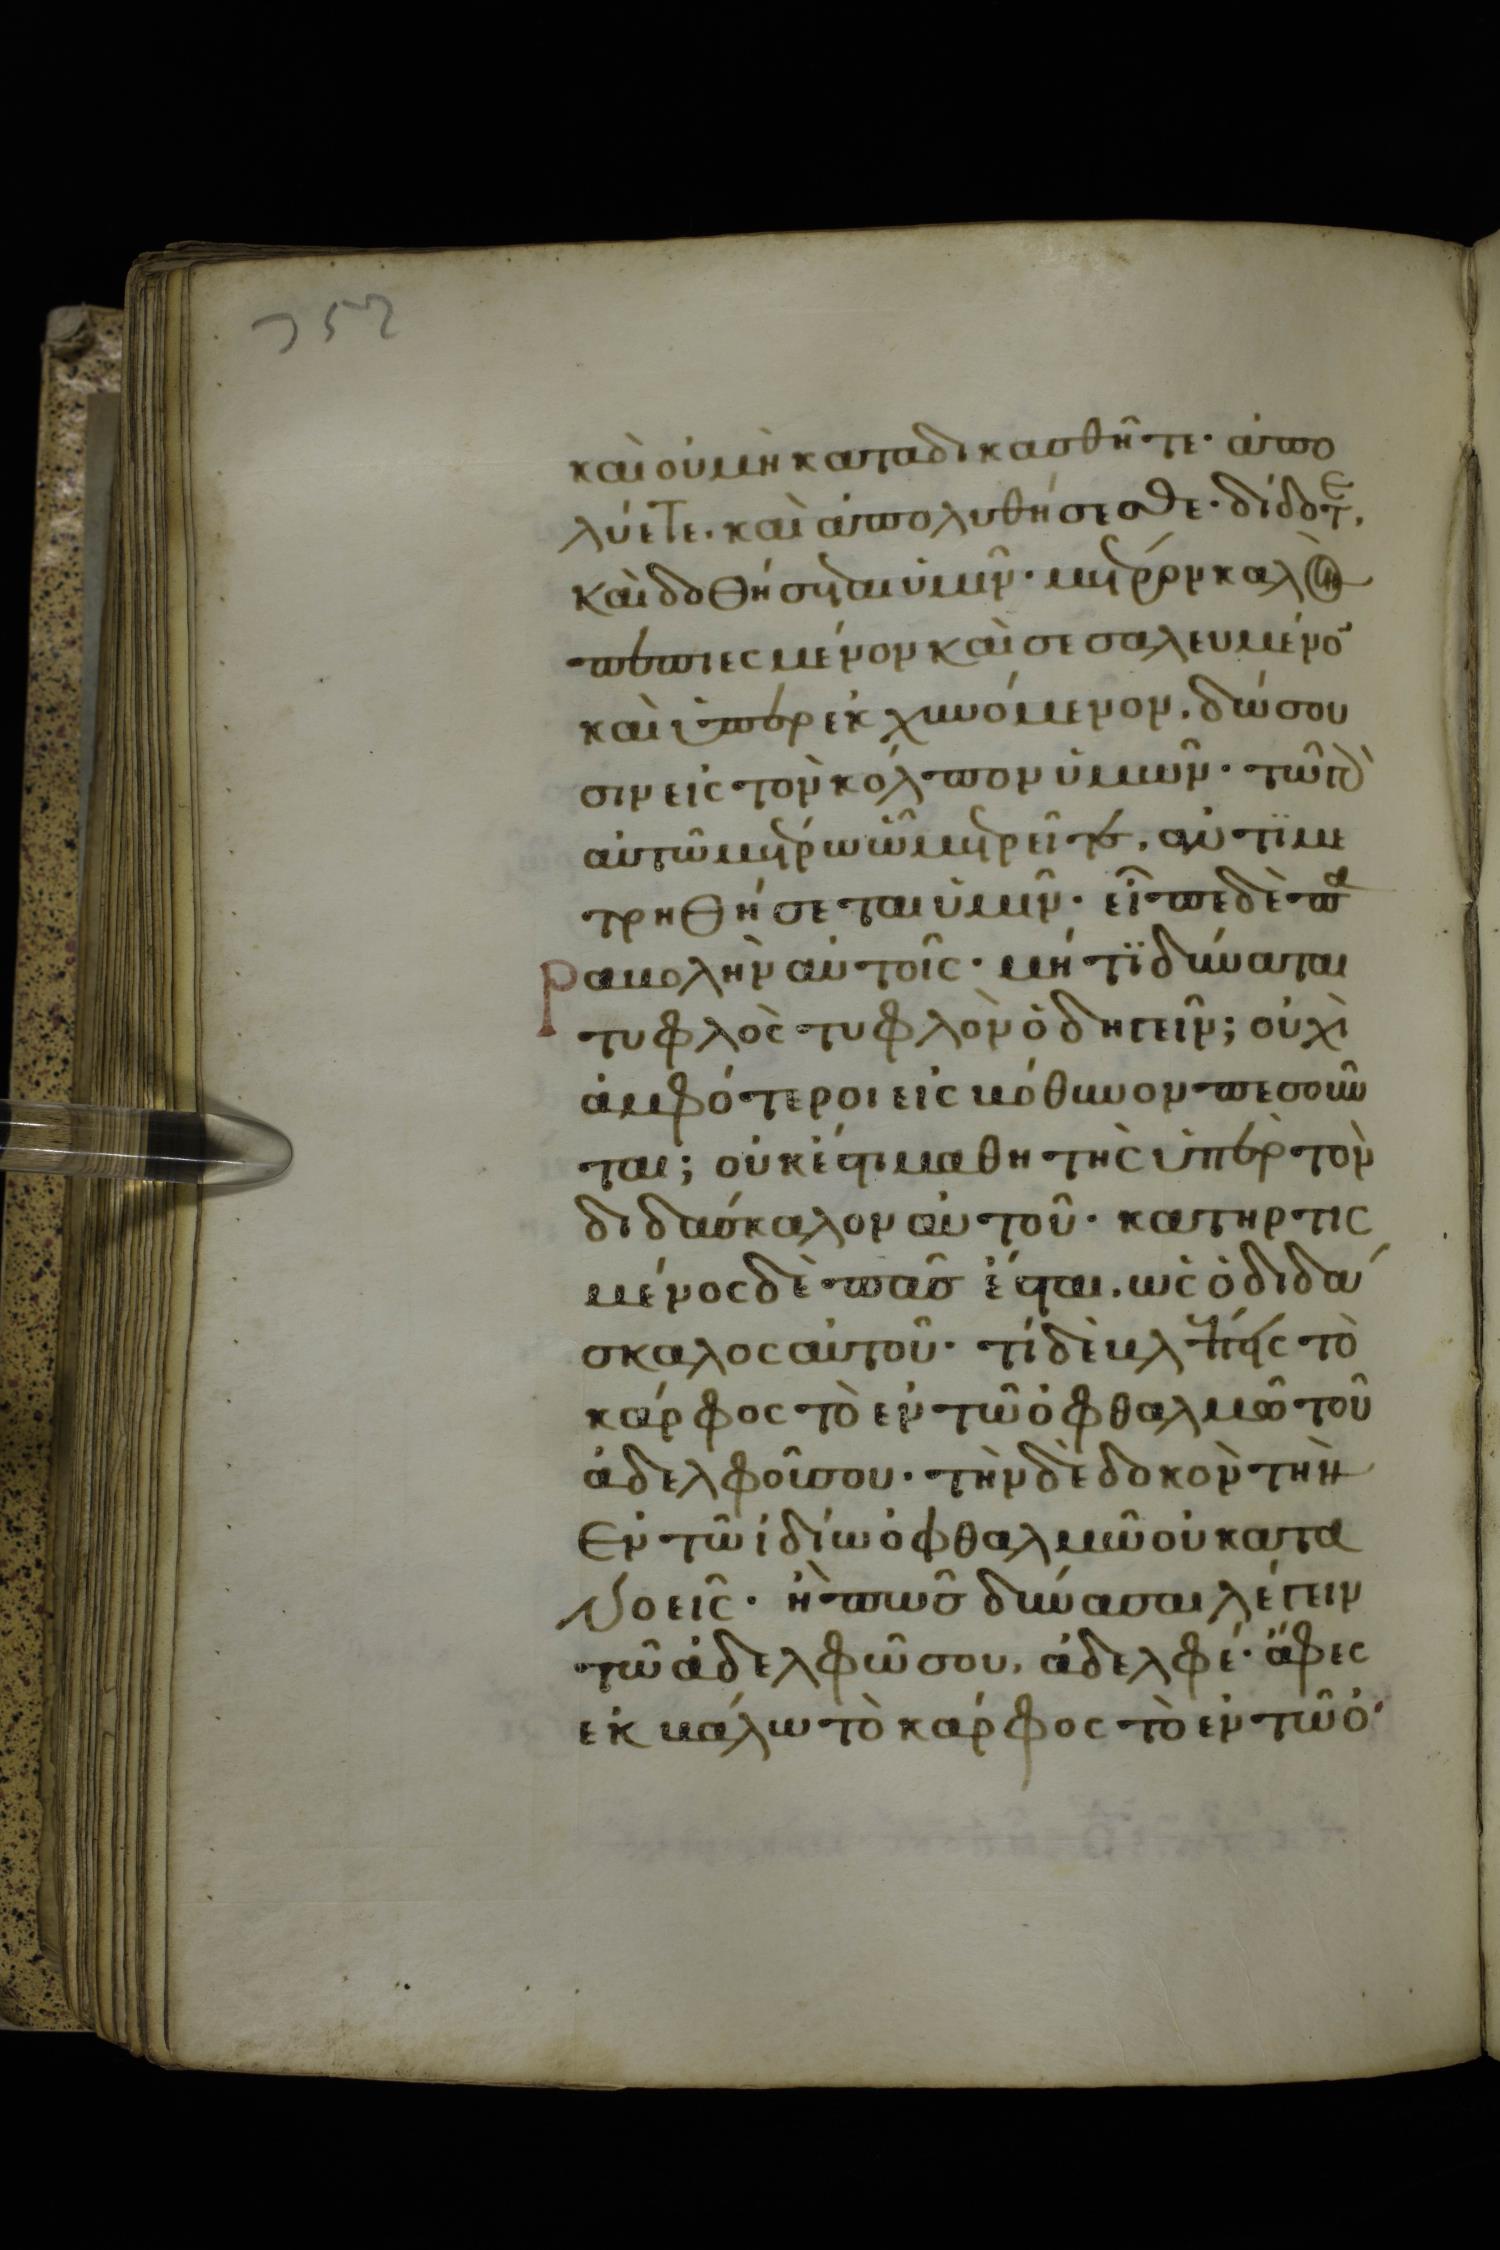 352
καὶ οὐ μὴ καταδικασθῆτε· ἀπο
λύετε. καὶ ἀπολυθήσεσθε· δίδοτε,
καὶ δοθήσεται ὑμῖν· μέτρον καλὸν
πεπιεσμένον καὶ σεσαλευμένο
καὶ ὑπερεκχυνόμενον. δώσου
σιν εἰς τὸν κόλπον ὑμῶν· τῶ γὰρ
αὐτῶ μέτρω ὧ μετρεῖτε, ἀντιμε
τρηθήσεται ὑμῖν· εἶπε δὲ πα
ραβολὴν αὐτοῖς· μήτϊ δύναται
τυφλὸς τυφλὸν ὁδηγεῖν; οὐχὶ
ἀμφότεροι εἰς βόθυνον πεσοῦν
ται; οὐκ ἔστι μαθητὴς ὑπὲρ τὸν
διδάσκαλον αὐτοῦ· κατηρτισ
μένος δὲ πᾶς ἔσται. ὡς ὁ διδά
σκαλος αὐτοῦ· τί δὲ βλέπεις τὸ
κάρφος τὸ ἐν τῶ ὀφθαλμῶ τοῦ
ἀδελφοῦ σου· τὴν δὲ δοκὸν τὴν
ἐν τῶ ἰδίω ὀφθαλμῶ οὐ κατα
νοεῖς· ἢ πῶς δύνασαι λέγειν
τῶ ἀδελφῶ σου, ἀδελφέ· ἄφες
ἐκβάλω τὸ κάρφος τὸ ἐν τῶ ὀ